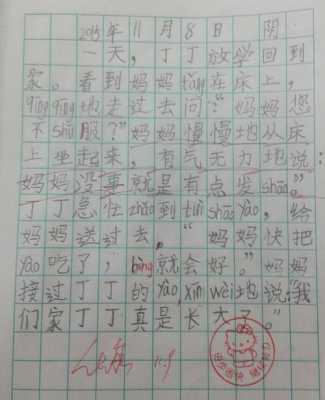 2015年11月8日 阴
一天，丁丁放学回到
家。看到妈妈tǎng在床上，
qīngqīng地走过去问：“妈妈您
不shū服？”妈妈慢慢地从床
上坐起来，有气无力地说：
妈妈没事就是有点发shāo。”
丁丁急忙zhǎo到tuì shāo yào，给
妈妈送过去，“妈妈快把
yào吃了，bìng就会好。”妈妈
接过丁丁的yào，xīn wèi地说：“我
们家丁丁真是长大了。”
11.9